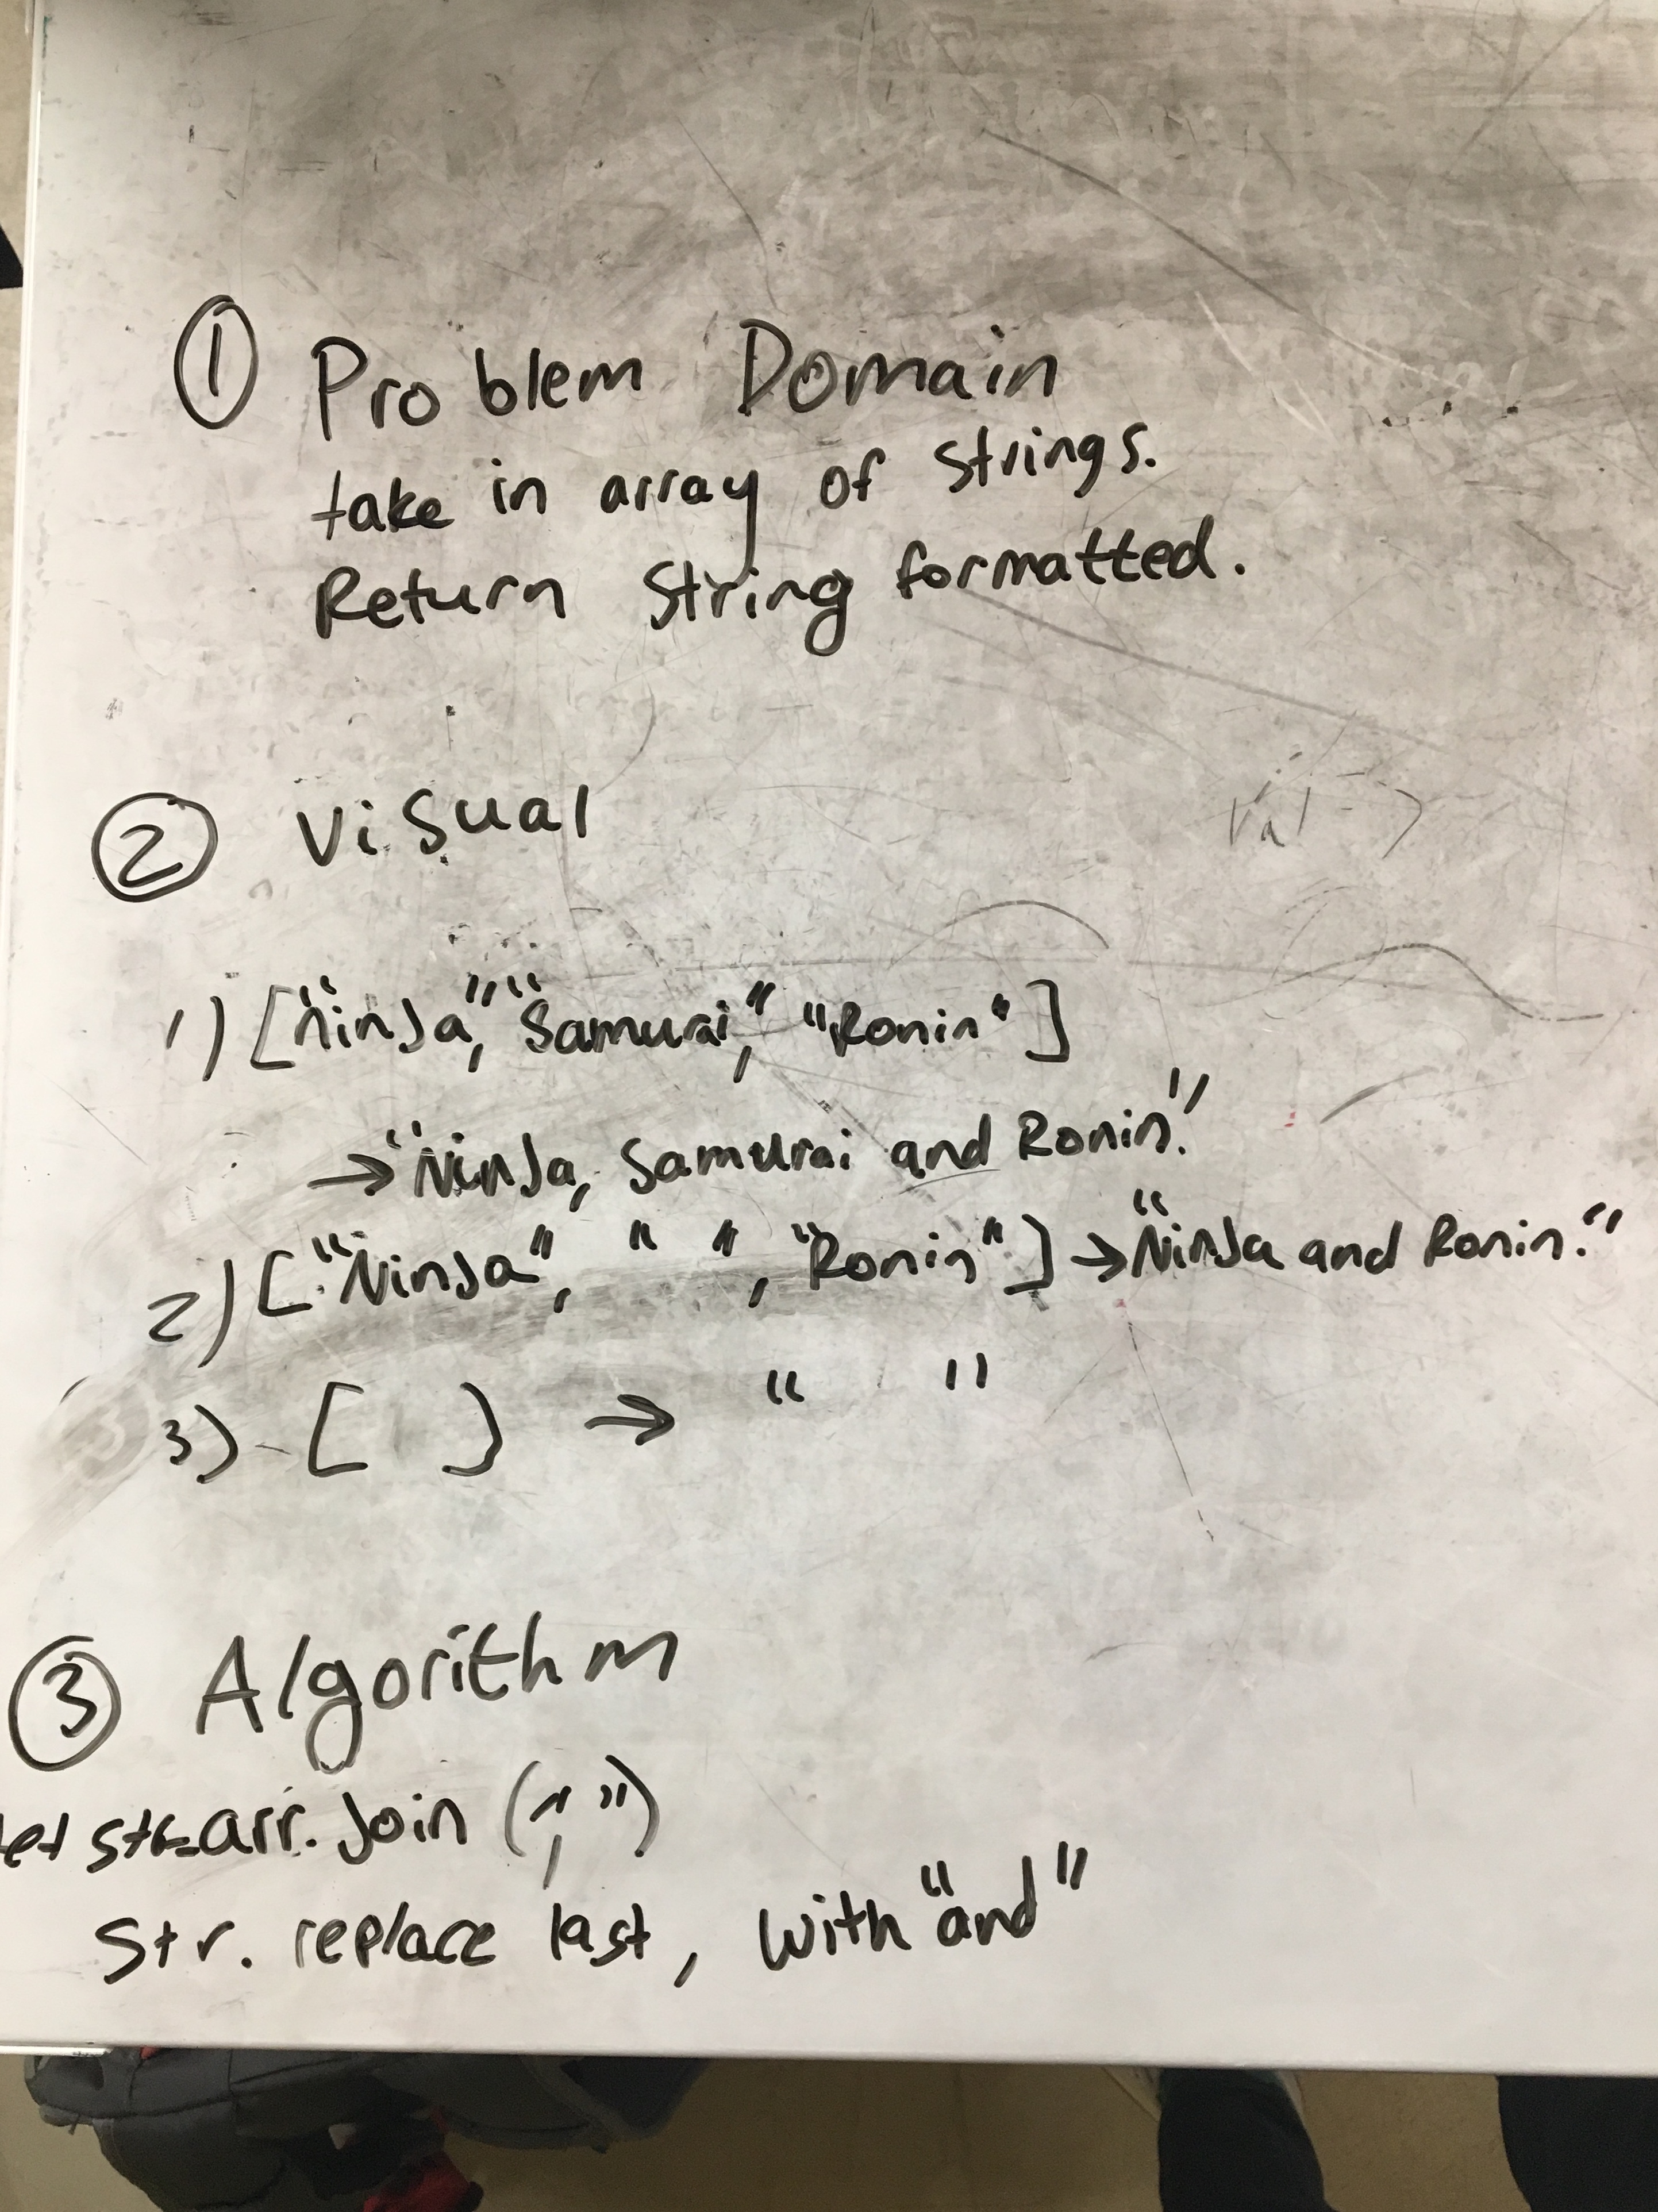 ① Problem Domain
take in array of strings.
Return String formatted.
② Visual
1) ["Ninja," "Samurai," "Ronin"]
→ "Ninja, Samurai and Ronin."
2) ["Ninja", " ", "Ronin"] → "Ninja and Ronin."
3) [ ] → " "
③ Algorithm
let str=arr.join(", ")
Str. replace last , with "and"